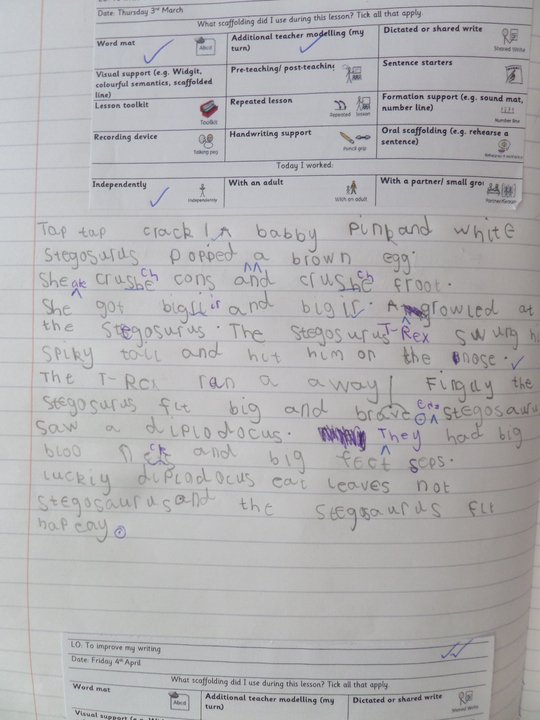 Date: Thursday 3rd March
What scaffolding did I use during this lesson? Tick all that apply.
Word mat
Abcd
Additional teacher modelling (my turn)
Dictated or shared write
Shared Write
Visual support (e.g. Widgit, colourful semantics, scaffolded line)
Pre-teaching/ post-teaching
Sentence starters
Lesson toolkit
Toolkit
Repeated lesson
Repeated lesson
Formation support (e.g. sound mat, number line)
Number line
Recording device
Talking peg
Handwriting support
Pencil grip
Oral scaffolding (e.g. rehearse a sentence)
Today I worked:
Independently
Independently
With an adult
With an adult
With a partner/ small grou
Partner/Group
Tap tap crack! A babby pink and white
Stegosurus popped a brown egg.
She ate crushe ch cons and crushe ch froot.
She got bigir and bigir. A growled at
the Stegosurus. The stegosurus T-Rex swung h
spiky tall and hit him on the nose.
The T-Rex ran a away! Finqly the
Stegosurus flt big and brave stegosauru
saw a diplodocus. They had big
and big feet seps.
luckly diplodocus eat leaves not
stegosaurus and the stegosaurus flt
hap eay.
LO: To improve my writing
Date: Friday 4th April
What scaffolding did I use during this lesson? Tick all that apply.
Word mat
Abcd
Additional teacher modelling (my turn)
Dictated or shared write
Shared Write